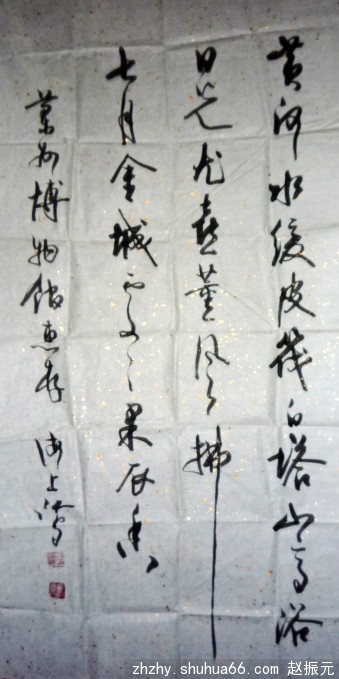 黄河水缓皮筏白塔山高浴
日光尤喜薰风拂
七月金城果香
兰州博物馆惠存 海上
zhzhy.shuhua66.com 赵振元